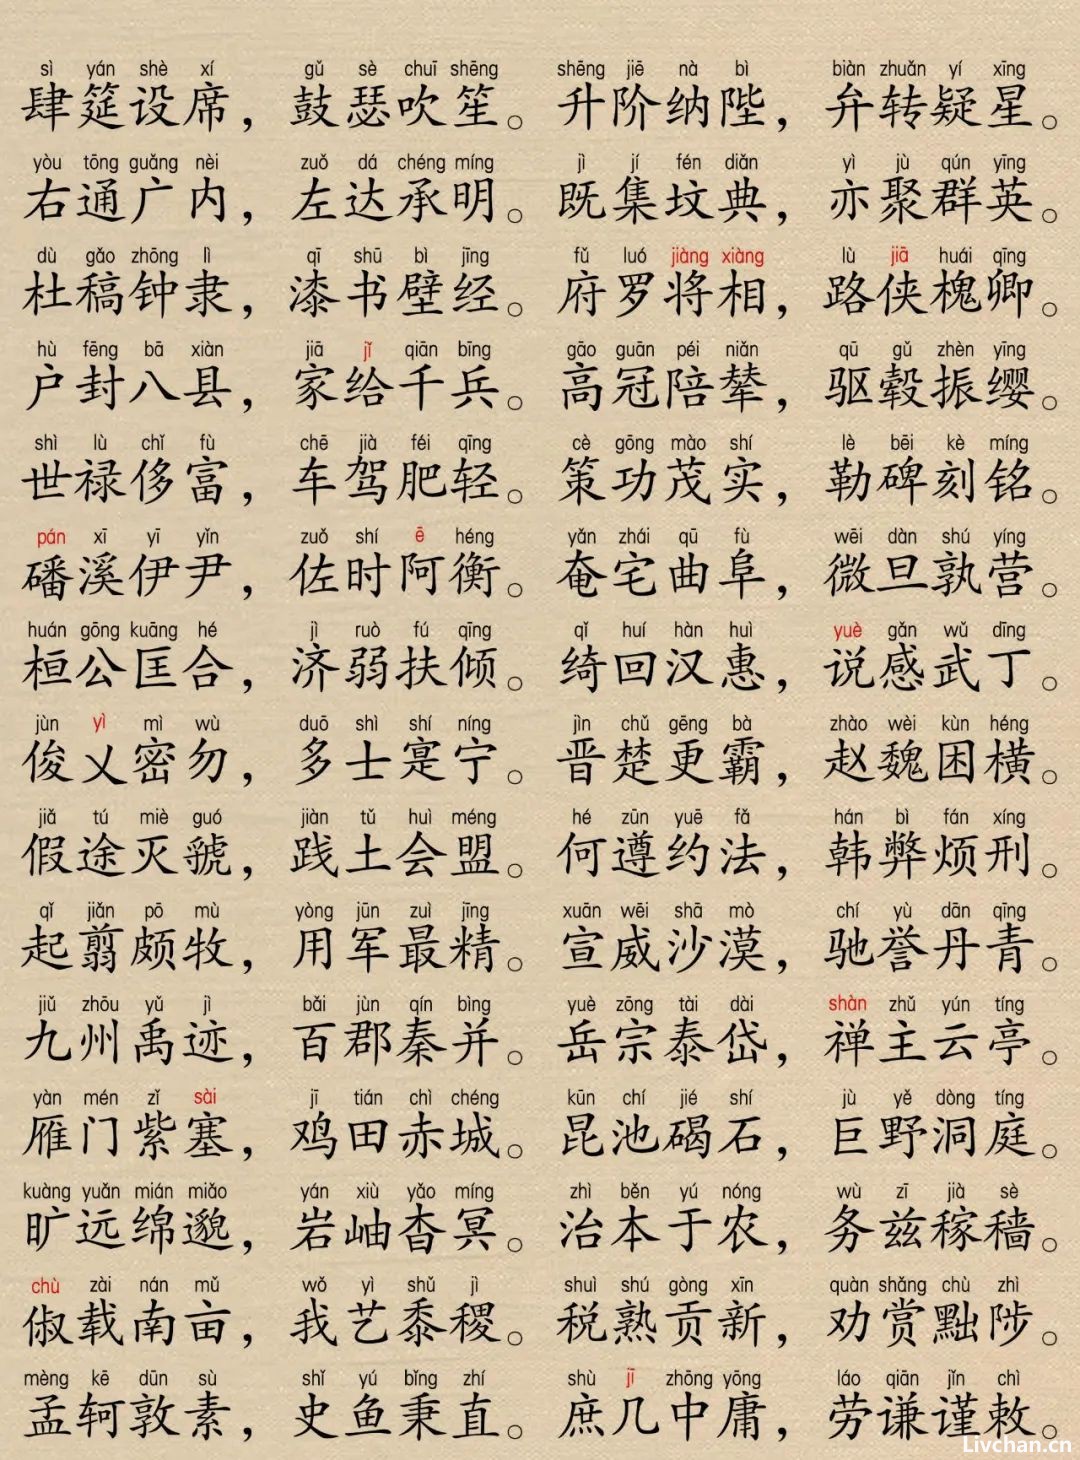 sì yán shè xí gǔ sè chuī shēng shēng jiē nà bì biàn zhuǎn yí xīng
肆筵设席，鼓瑟吹笙。升阶纳陛，弁转疑星。
yòu tōng guǎng nèi zuǒ dá chéng míng jì jí fén diǎn yì jù qún yīng
右通广内，左达承明。既集坟典，亦聚群英。
dù gǎo zhōng lì qī shū bì jīng fǔ luó jiàng xiàng lù jiā huái qīng
杜稿钟隶，漆书壁经。府罗将相，路侠槐卿。
hù fēng bā xiàn jiā jǐ qiān bīng gāo guān péi niǎn qū gǔ zhèn yīng
户封八县，家给千兵。高冠陪辇，驱毂振缨。
shì lù chǐ fù chē jià féi qīng cè gōng mào shí lè bēi kè míng
世禄侈富，车驾肥轻。策功茂实，勒碑刻铭。
pán xī yī yǐn zuǒ shí ē héng yǎn zhái qū fù wēi dàn shú yíng
磻溪伊尹，佐时阿衡。奄宅曲阜，微旦孰营。
huán gōng kuāng hé jì ruò fú qīng qǐ huí hàn huì yuè gǎn wǔ dīng
桓公匡合，济弱扶倾。绮回汉惠，说感武丁。
jùn yì mì wù duō shì shí níng jìn chǔ gēng bà zhào wèi kùn héng
俊乂密勿，多士寔宁。晋楚更霸，赵魏困横。
jiǎ tú miè guó jiàn tǔ huì méng hé zūn yuē fǎ hán bì fán xíng
假途灭虢，践土会盟。何遵约法，韩弊烦刑。
qǐ jiǎn pō mù yòng jūn zuì jīng xuān wēi shā mò chí yù dān qīng
起翦颇牧，用军最精。宣威沙漠，驰誉丹青。
jiǔ zhōu yǔ jì bǎi jùn qín bìng yuè zōng tài dài shàn zhǔ yún tíng
九州禹迹，百郡秦并。岳宗泰岱，禅主云亭。
yàn mén zǐ sài jī tián chì chéng kūn chí jié shí jù yě dòng tíng
雁门紫塞，鸡田赤城。昆池碣石，巨野洞庭。
kuàng yuǎn mián miǎo yán xiù yǎo míng zhì běn yú nóng wù zī jià sè
旷远绵邈，岩岫杳冥。治本于农，务兹稼穑。
chù zài nán mǔ wǒ yì shǔ jì shuì shú gòng xīn quàn shǎng chù zhì
俶载南亩，我艺黍稷。税熟贡新，劝赏黜陟。
mèng kē dūn sù shǐ yú bǐng zhí shù jī zhōng yōng láo qiān jǐn chì
孟轲敦素，史鱼秉直。庶几中庸，劳谦谨敕。
Livchan.cn